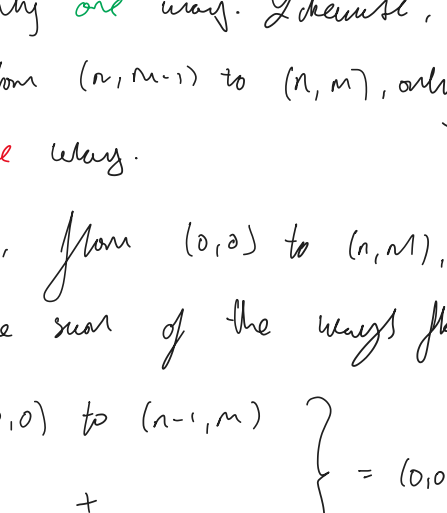 one way. Likewise,
from (n, m-1) to (n, m), only
way.
, from (0,0) to (n, m),
sum of the ways
,0) to (n-1, m)
} = (0,0
+